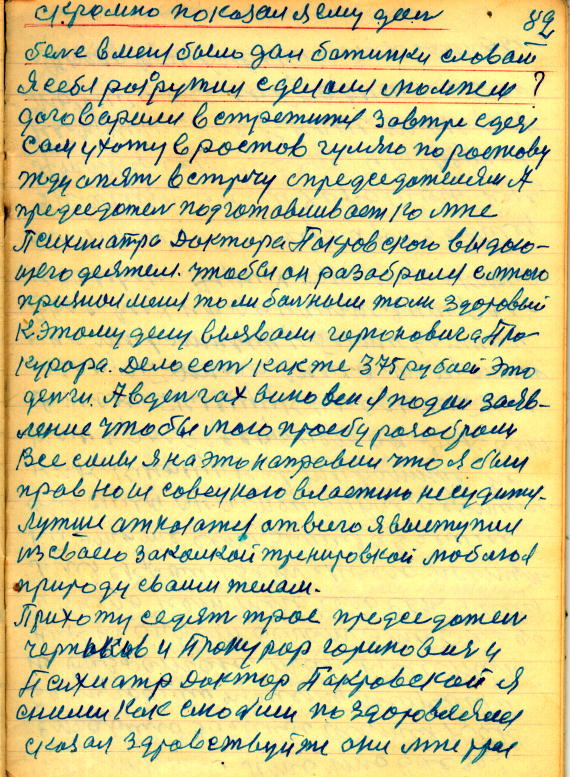 скромно показал я ему ден
82
беле в меня было дал ботинки словай
я себя рогружил сделалиможжем ?
договарили встретитя завтре сдея
сам ухожу в ростов гуляю по ростову
жду опят встречу с председателям А
председател подготавливает ко мне
Психиатра Доктора Покровского выдаю-
щего деятеля. чтобы он разобрался с мною
признал меня толи больным толи здоровый
К этому делу вызвали горонович а Про-
курора. Дело есть как же 375 рублей это
денги. А в денгах виновен я подал заяв-
ление чтобы мою прозбу розобрали
Все силы я на это направил что я был
прав но и советского властию не судитя.
Лутше отказатя от всего я выступил
из своею закалкой тренировкой моблюл
природу своим телам.
Прихожу седят трое председател
черноков и Прокурор горинович и
Психиатр доктор Покровской я
с ними как смог и поздоровлялся
сказал здравствуйте они мне